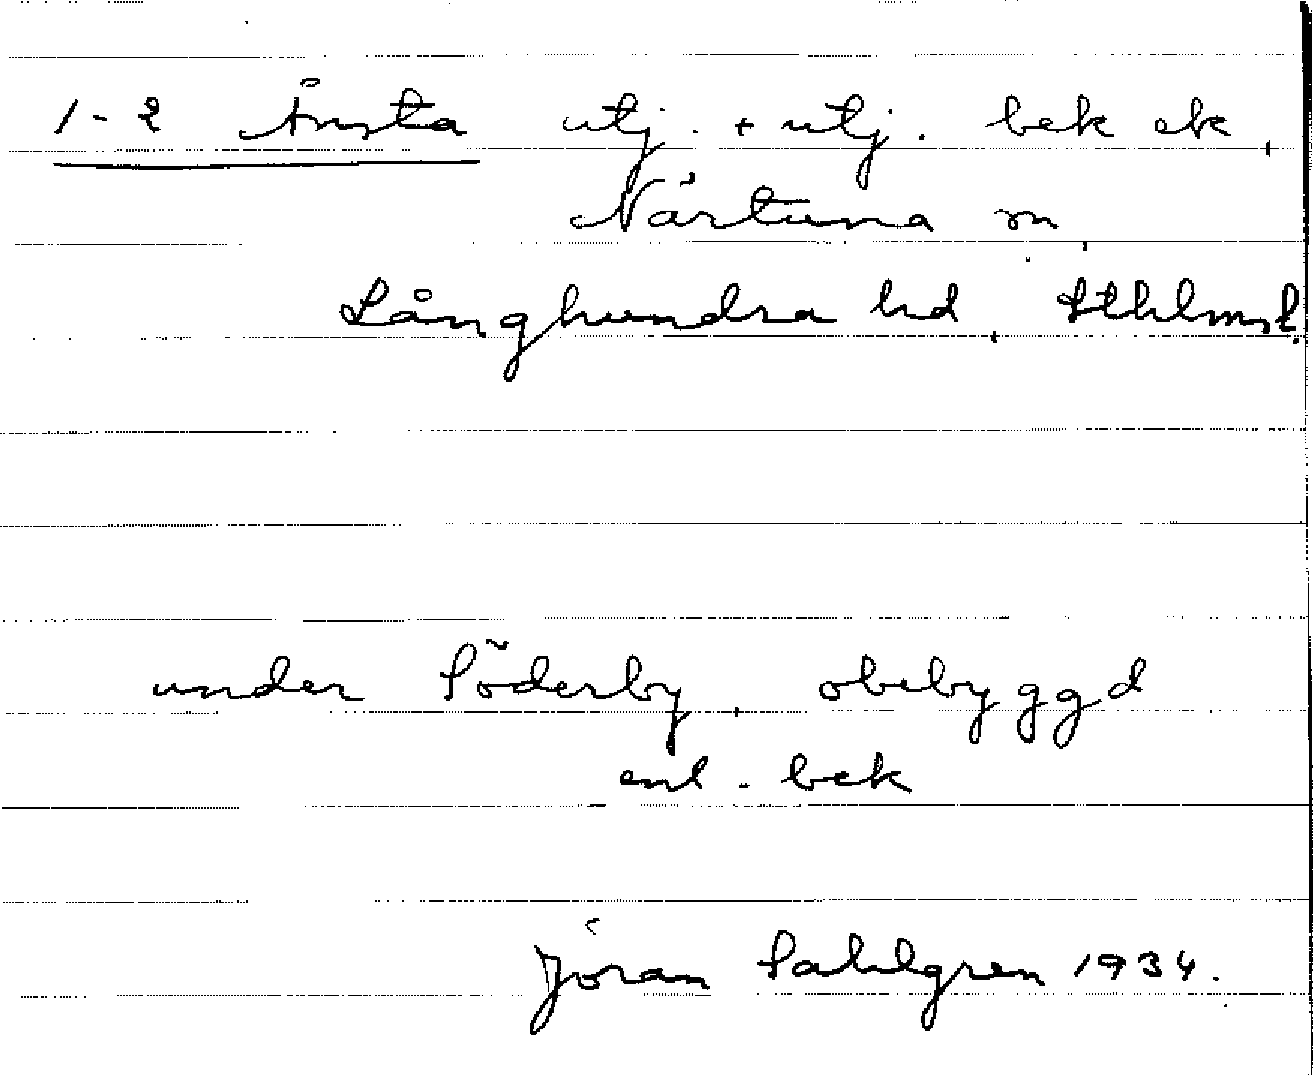 1-2 Ånsta utj. + utj. bek ek,
Närtuna sn,
Långhundra hd, Sthlmsl.
under Söderby, obebyggd
enl. bek
Jöran Sahlgren 1934.